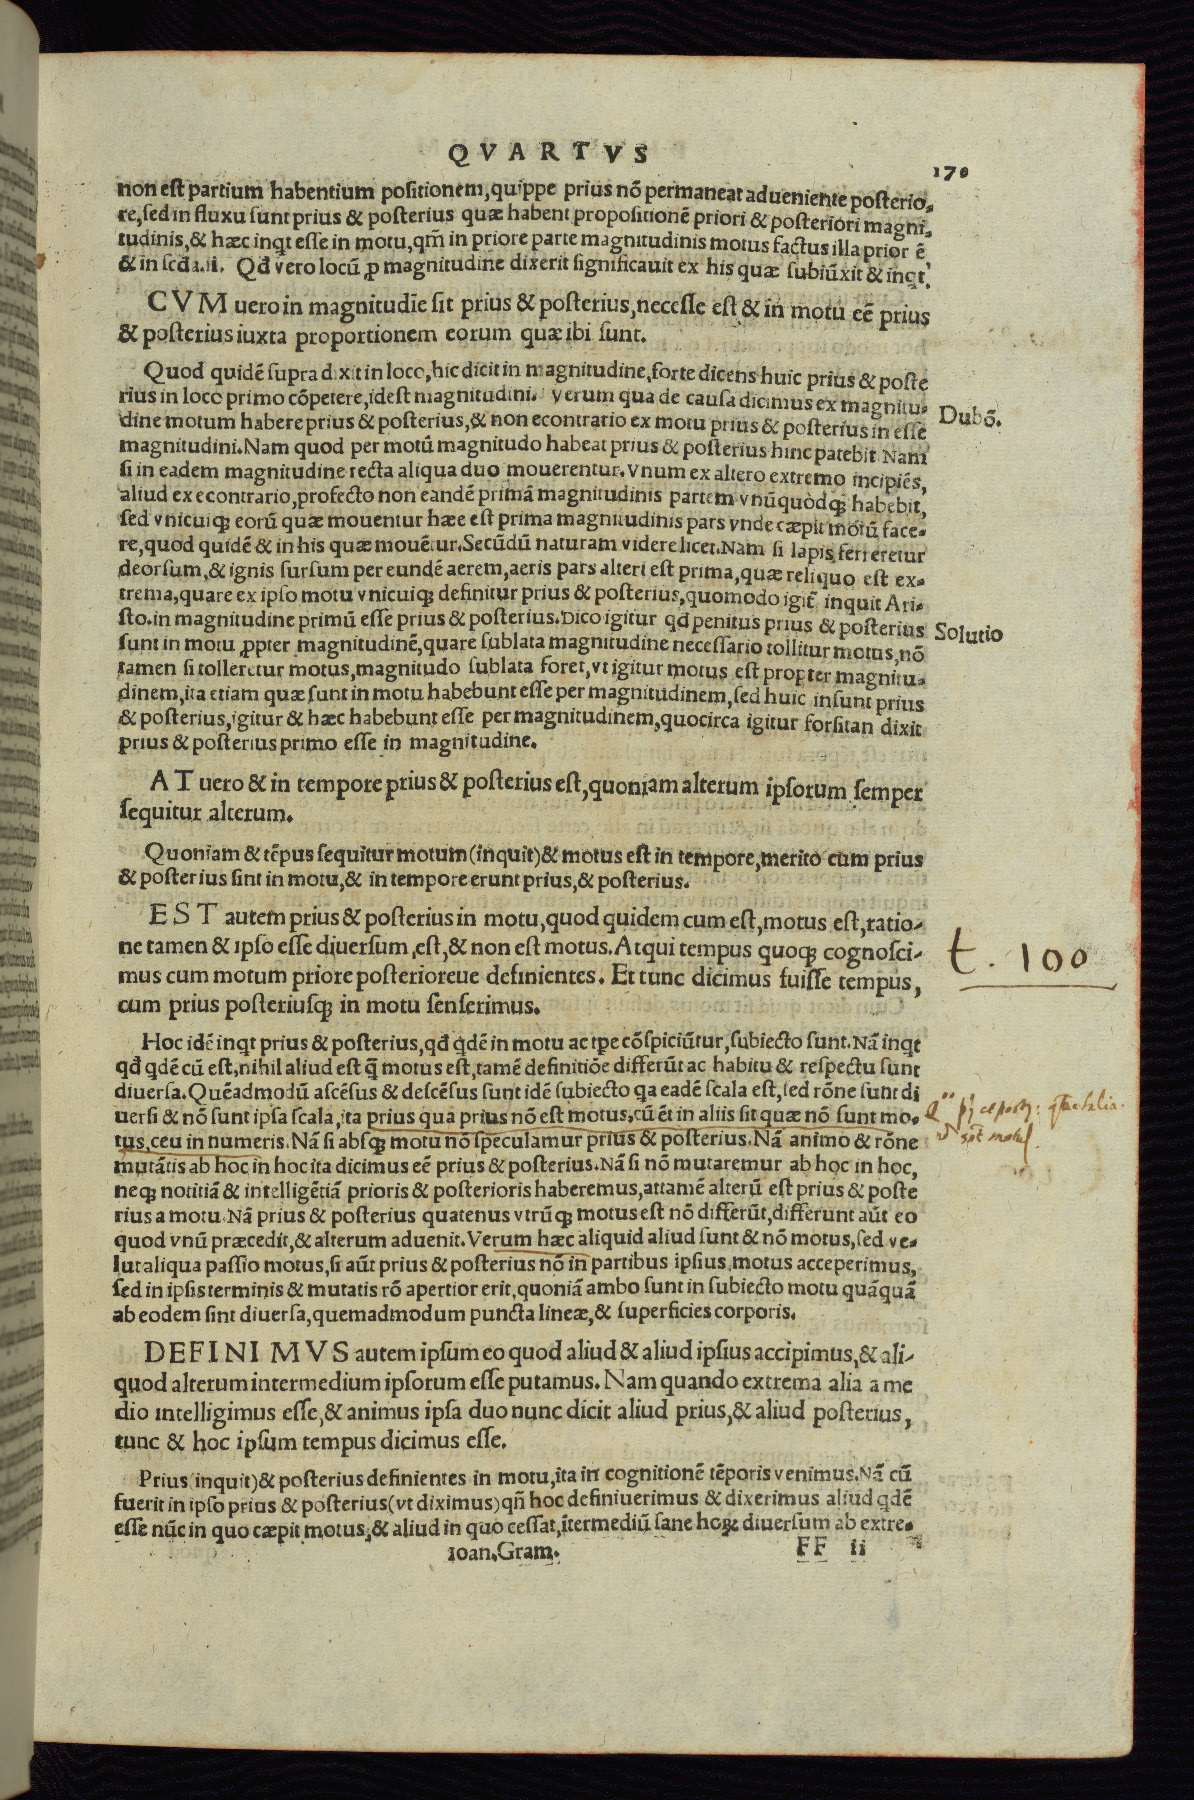 QVARTVS
170
non est partium habentium positionem, quippe prius nõ permaneat adueniente posterio-
re, sed in fluxu sunt prius & posterius quæ habent propositionẽ priori & posteriori magni-
tudinis, & hæc inqt esse in motu, qm̃ in priore parte magnitudinis motus factus illa prior ẽ
& in scđa. ii. Qđ vero locũ ꝓ magnitudine dixerit significauit ex his quæ subiũxit & inqt.
CVM vero in magnitudĩe sit prius & posterius, necesse est & in motu eẽ prius
& posterius iuxta proportionem eorum quæ ibi sunt.
Quod quidẽ supra dixit in loco, hic dicit in magnitudine, forte dicens huic prius & poste
rius in loco primo cõpetere, idest magnitudini. verum qua de causa dicimus ex magnitu-
Dubõ.
dine motum habere prius & posterius, & non econtrario ex motu prius & posterius in esse
magnitudini. Nam quod per motũ magnitudo habeat prius & posterius hinc patebit. Nam
si in eadem magnitudine recta aliqua duo mouerentur. Vnum ex altero extremo incipiẽs,
aliud ex econtrario, profecto non eandẽ primã magnitudinis partem vnũquòdqȝ habebit,
sed vnicuiqȝ eorũ quæ mouentur hæe est prima magnitudinis pars vnde cæpit motũ face-
re, quod quidẽ & in his quæ mouẽtur. Secũdũ naturam videre licet. Nam si lapis ferreretur
deorsum, & ignis sursum per eundẽ aerem, aeris pars alteri est prima, quæ reliquo est ex-
trema, quare ex ipso motu vnicuiqȝ definitur prius & posterius, quomodo igit̃ inquit Ari-
sto. in magnitudine primũ esse prius & posterius. Dico igitur qđ penitus prius & posterius
Solutio
sunt in motu ꝓpter magnitudinẽ, quare sublata magnitudine necessario tollitur motus, nõ
tamen si tolleretur motus, magnitudo sublata foret, vt igitur motus est propter magnitu-
dinem, ita etiam quæ sunt in motu habebunt esse per magnitudinem, sed huic insunt prius
& posterius, igitur & hæc habebunt esse per magnitudinem, quocirca igitur forsitan dixit
prius & posterius primo esse in magnitudine.
AT vero & in tempore prius & posterius est, quoniam alterum ipsorum semper
sequitur alterum.
Quoniam & tẽpus sequitur motum (inquit) & motus est in tempore, merito cum prius
& posterius sint in motu, & in tempore erunt prius, & posterius.
EST autem prius & posterius in motu, quod quidem cum est, motus est, ratio-
ne tamen & ipso esse diuersum, est, & non est motus. Atqui tempus quoqȝ cognosci-
t. 100
mus cum motum priore posterioreue definientes. Et tunc dicimus fuisse tempus,
cum prius posteriusqȝ in motu senserimus.
Hoc idẽ inqt prius & posterius, qđ qdẽ in motu ac tpe cõspiciũtur, subiecto sunt. Nã inqt
qđ qdẽ cũ est, nihil aliud est q̃ motus est, tamẽ definitiõe differũt ac habitu & respectu sunt
diuersa. Quẽadmodũ ascẽsus & descẽsus sunt idẽ subiecto qa eadẽ scala est, sed rõne sunt di
uersi & nõ sunt ipsa scala, ita prius qua prius nõ est motus, cũ ẽt in aliis sit quæ nõ sunt mo-
tus, ceu in numeris. Nã si absqȝ motu nõ speculamur prius & posterius. Nã animo & rõne
mutãtis ab hoc in hoc ita dicimus eẽ prius & posterius. Nã si nõ mutaremur ab hoc in hoc,
neqȝ notitiã & intelligẽtiã prioris & posterioris haberemus, attamẽ alterũ est prius & poste
rius a motu. Nã prius & posterius quatenus vtrũqȝ motus est nõ differũt, differunt aũt eo
quod vnũ præcedit, & alterum aduenit. Verum hæc aliquid aliud sunt & nõ motus, sed ve-
lut aliqua passio motus, si aũt prius & posterius nõ in partibus ipsius motus acceperimus,
sed in ipsis terminis & mutatis rõ apertior erit, quoniã ambo sunt in subiecto motu quãquã
ab eodem sint diuersa, quemadmodum puncta lineæ, & superficies corporis.
DEFINIMVS autem ipsum eo quod aliud & aliud ipsius accipimus, & ali-
quod alterum intermedium ipsorum esse putamus. Nam quando extrema alia a me
dio intelligimus esse, & animus ipsa duo nunc dicit aliud prius, & aliud posterius,
tunc & hoc ipsum tempus dicimus esse.
Prius (inquit) & posterius definientes in motu, ita in cognitionẽ tẽporis venimus. Nã cũ
fuerit in ipso prius & posterius (vt diximus) qñ hoc definiuerimus & dixerimus aliud qdẽ
esse nũc in quo cæpit motus, & aliud in quo cessat, ĩtermediũ sane hoqȝ diuersum ab extre-
Ioan. Gram.
FF ii